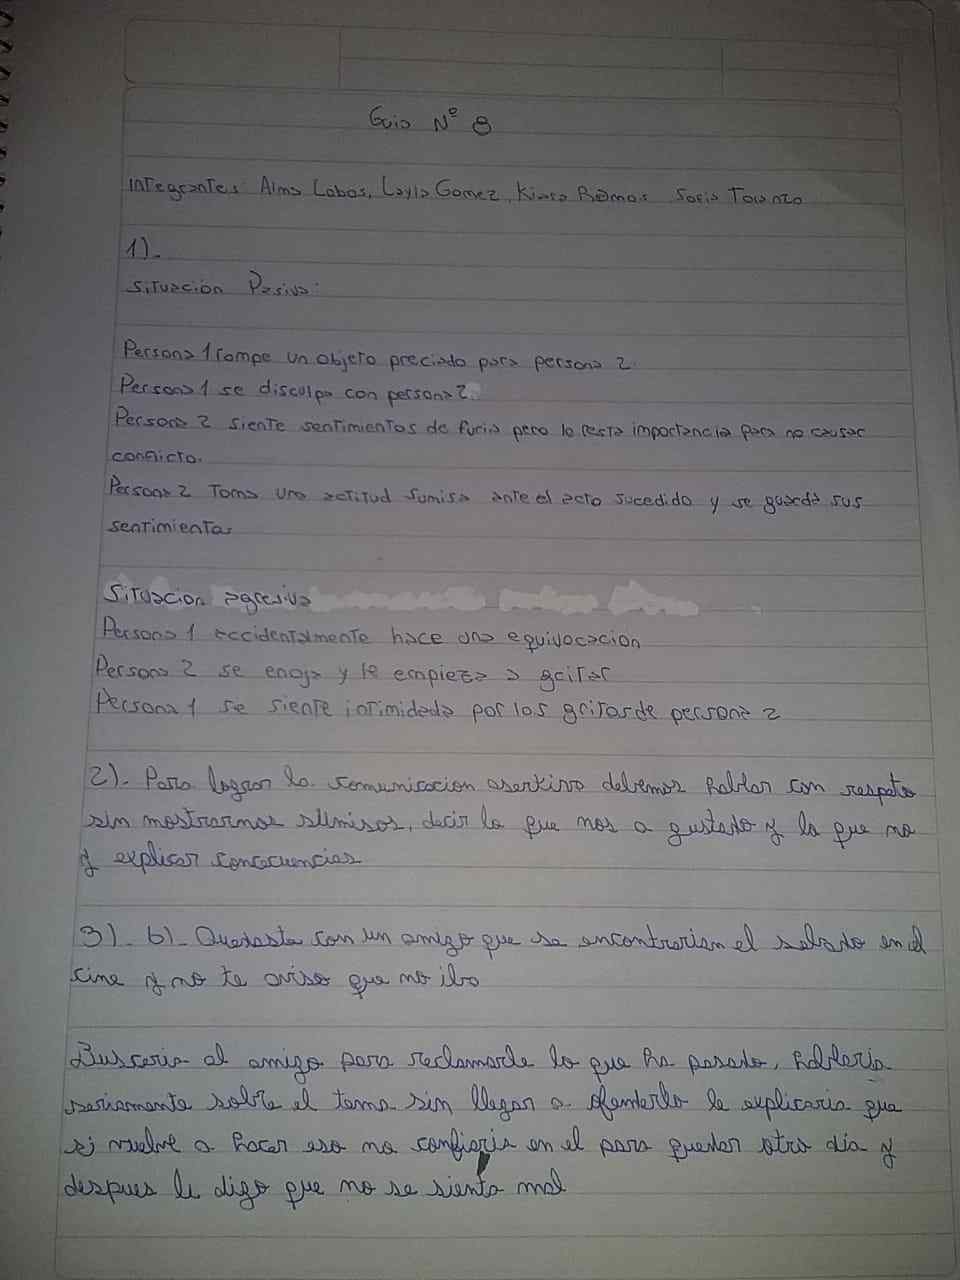 Guia Nº 8
Integrantes: Alma Lobos, Layla Gomez, Kiara Ramos Sofia Toranzo
1).
Situación Pasiva:
Persona 1 rompe un objeto preciado para persona 2.
Persona 1 se disculpa con persona 2.
Persona 2 siente sentimientos de furia pero le resta importancia para no causar
conflicto.
Persona 2 Toma una actitud sumisa ante el acto sucedido y se guarda sus
sentimientos
Situacion agresiva
Persona 1 accidentalmente hace una equivocacion
Persona 2 se enoja y le empieza a gritar
Persona 1 se siente intimidada por los gritos de persona 2
2). Para lograr la comunicacion asertiva debemos hablar con respeto
sin mostrarnos sumisos, decir lo que nos a gustado y lo que no
y explicar consecuencias
3). b). Quedaste con un amigo que se encontrarian el sabado en el
cine y no te aviso que no iba
Buscaria al amigo para reclamarle lo que ha pasado, hablaria
seriamente sobre el tema sin llegar a ofenderlo le explicaria que
si vuelve a hacer eso no confiaria en el para quedar otro dia y
despues le digo que no se sienta mal